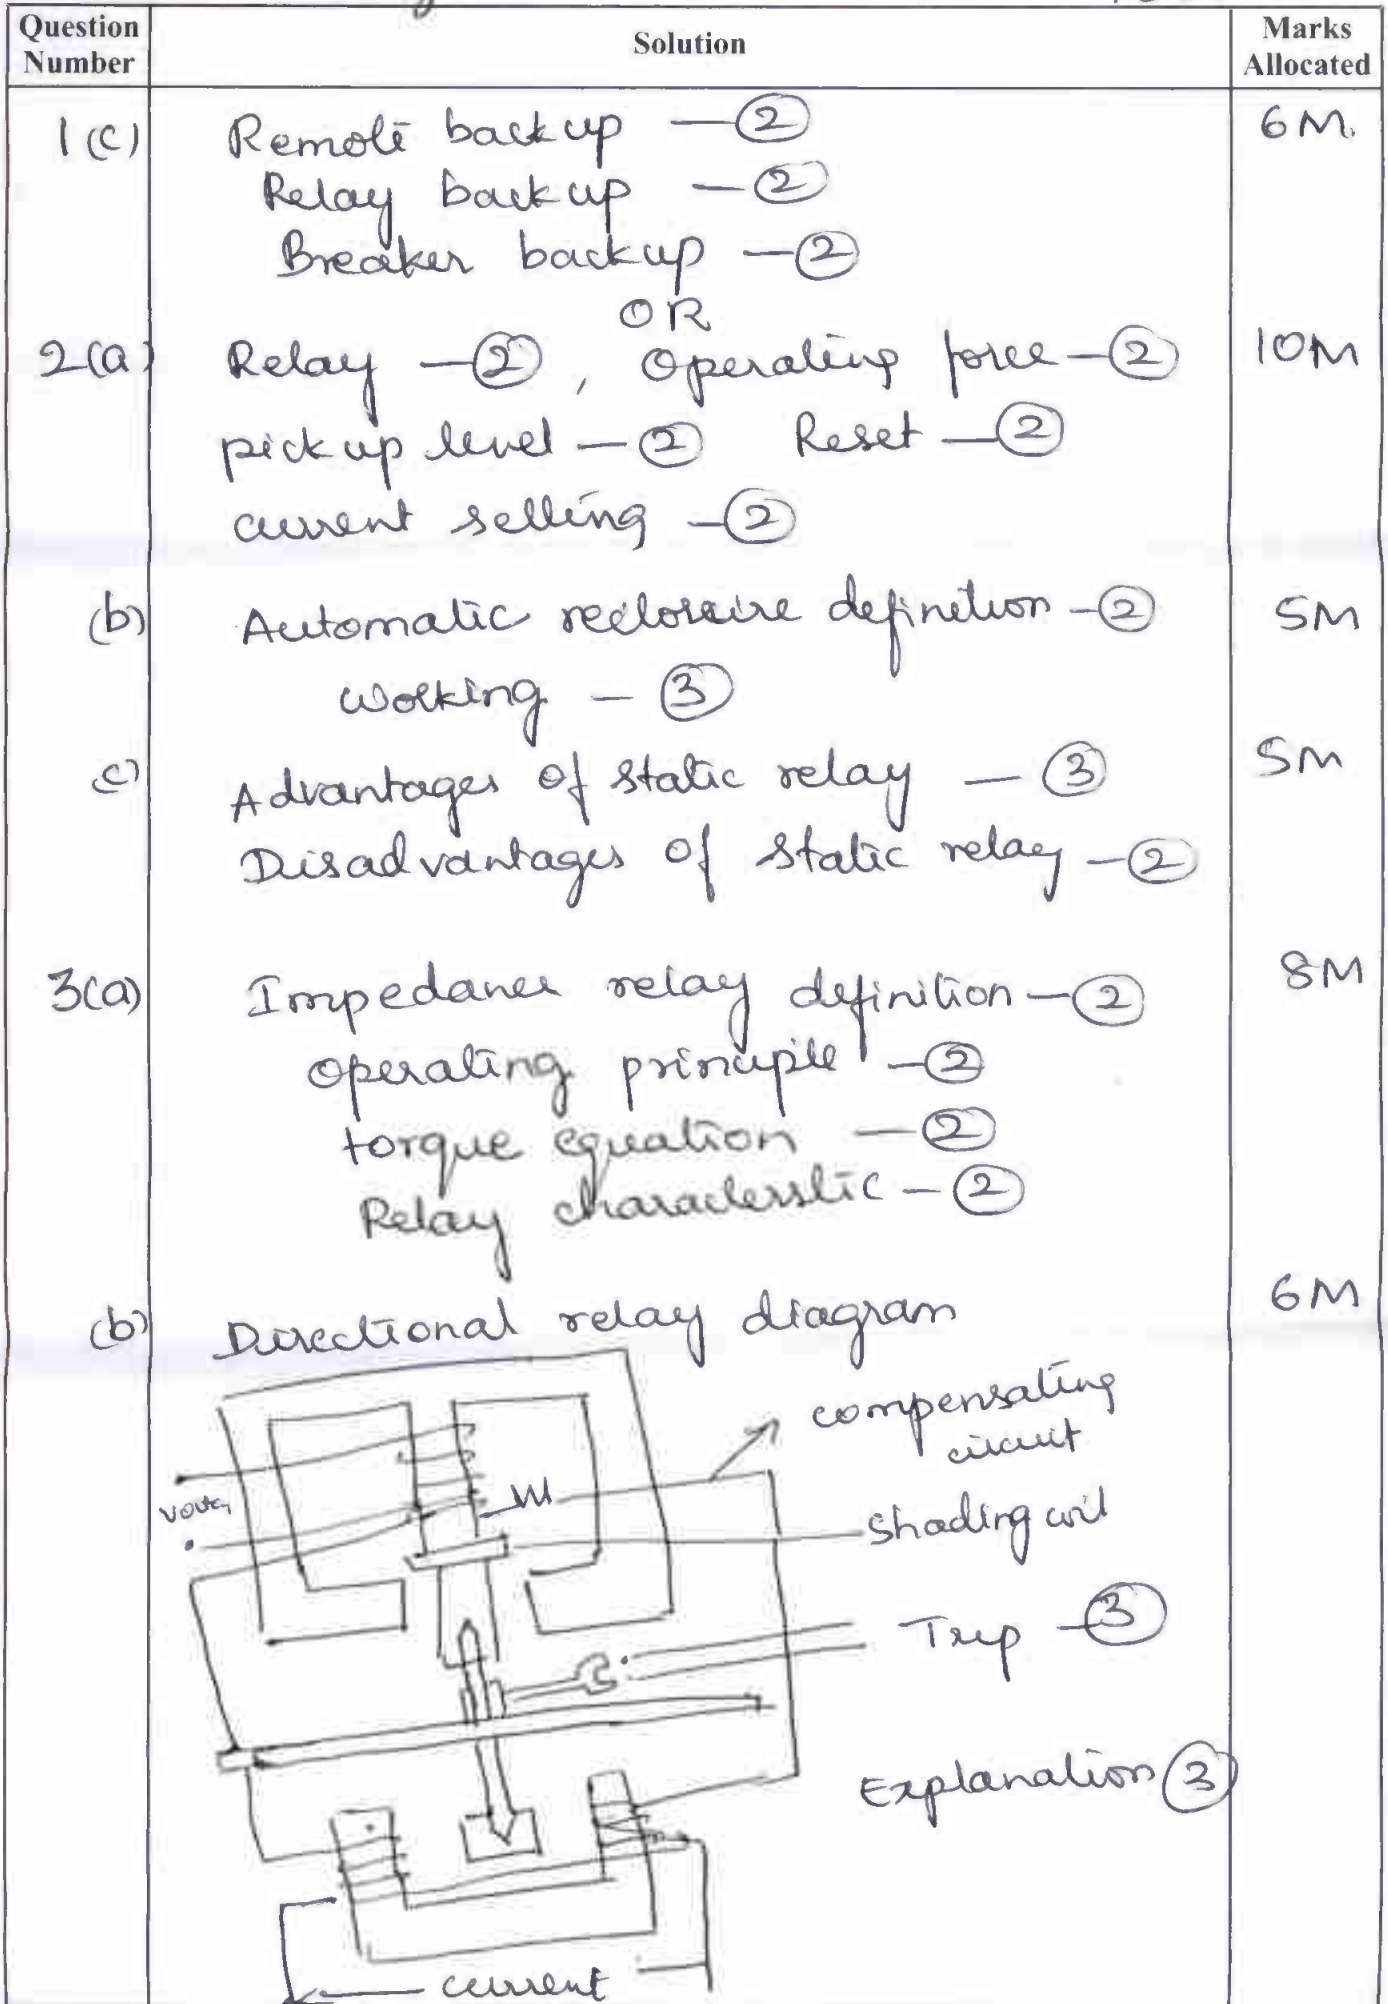 Question Number
Solution
Marks Allocated
1(c) Remote backup — 2 6M.
Relay backup — 2
Breaker backup — 2
OR
2(a) Relay — 2, Operating force — 2 10M
pick up level — 2 Reset — 2
current setting — 2
(b) Automatic reclosure definition — 2 5M
working — 3
c) Advantages of static relay — 3 5M
Disadvantages of static relay — 2
3(a) Impedance relay definition — 2 8M
operating principle — 2
torque equation — 2
Relay characterstic — 2
(b) Directional relay diagram 6M
compensating
circuit
shading coil
Trip — 3
Explanation 3
current